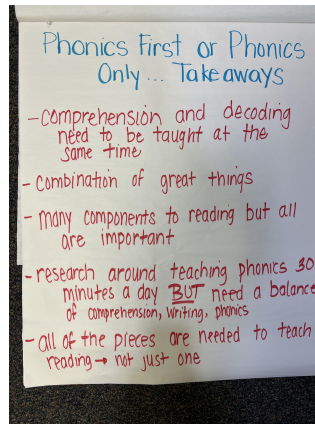 Phonics First or Phonics
Only... Takeaways
- comprehension and decoding
need to be taught at the
same time
- combination of great things
- many components to reading but all
are important
- research around teaching phonics 30
minutes a day BUT need a balance
of comprehension, writing, phonics
- all of the pieces are needed to teach
reading → not just one